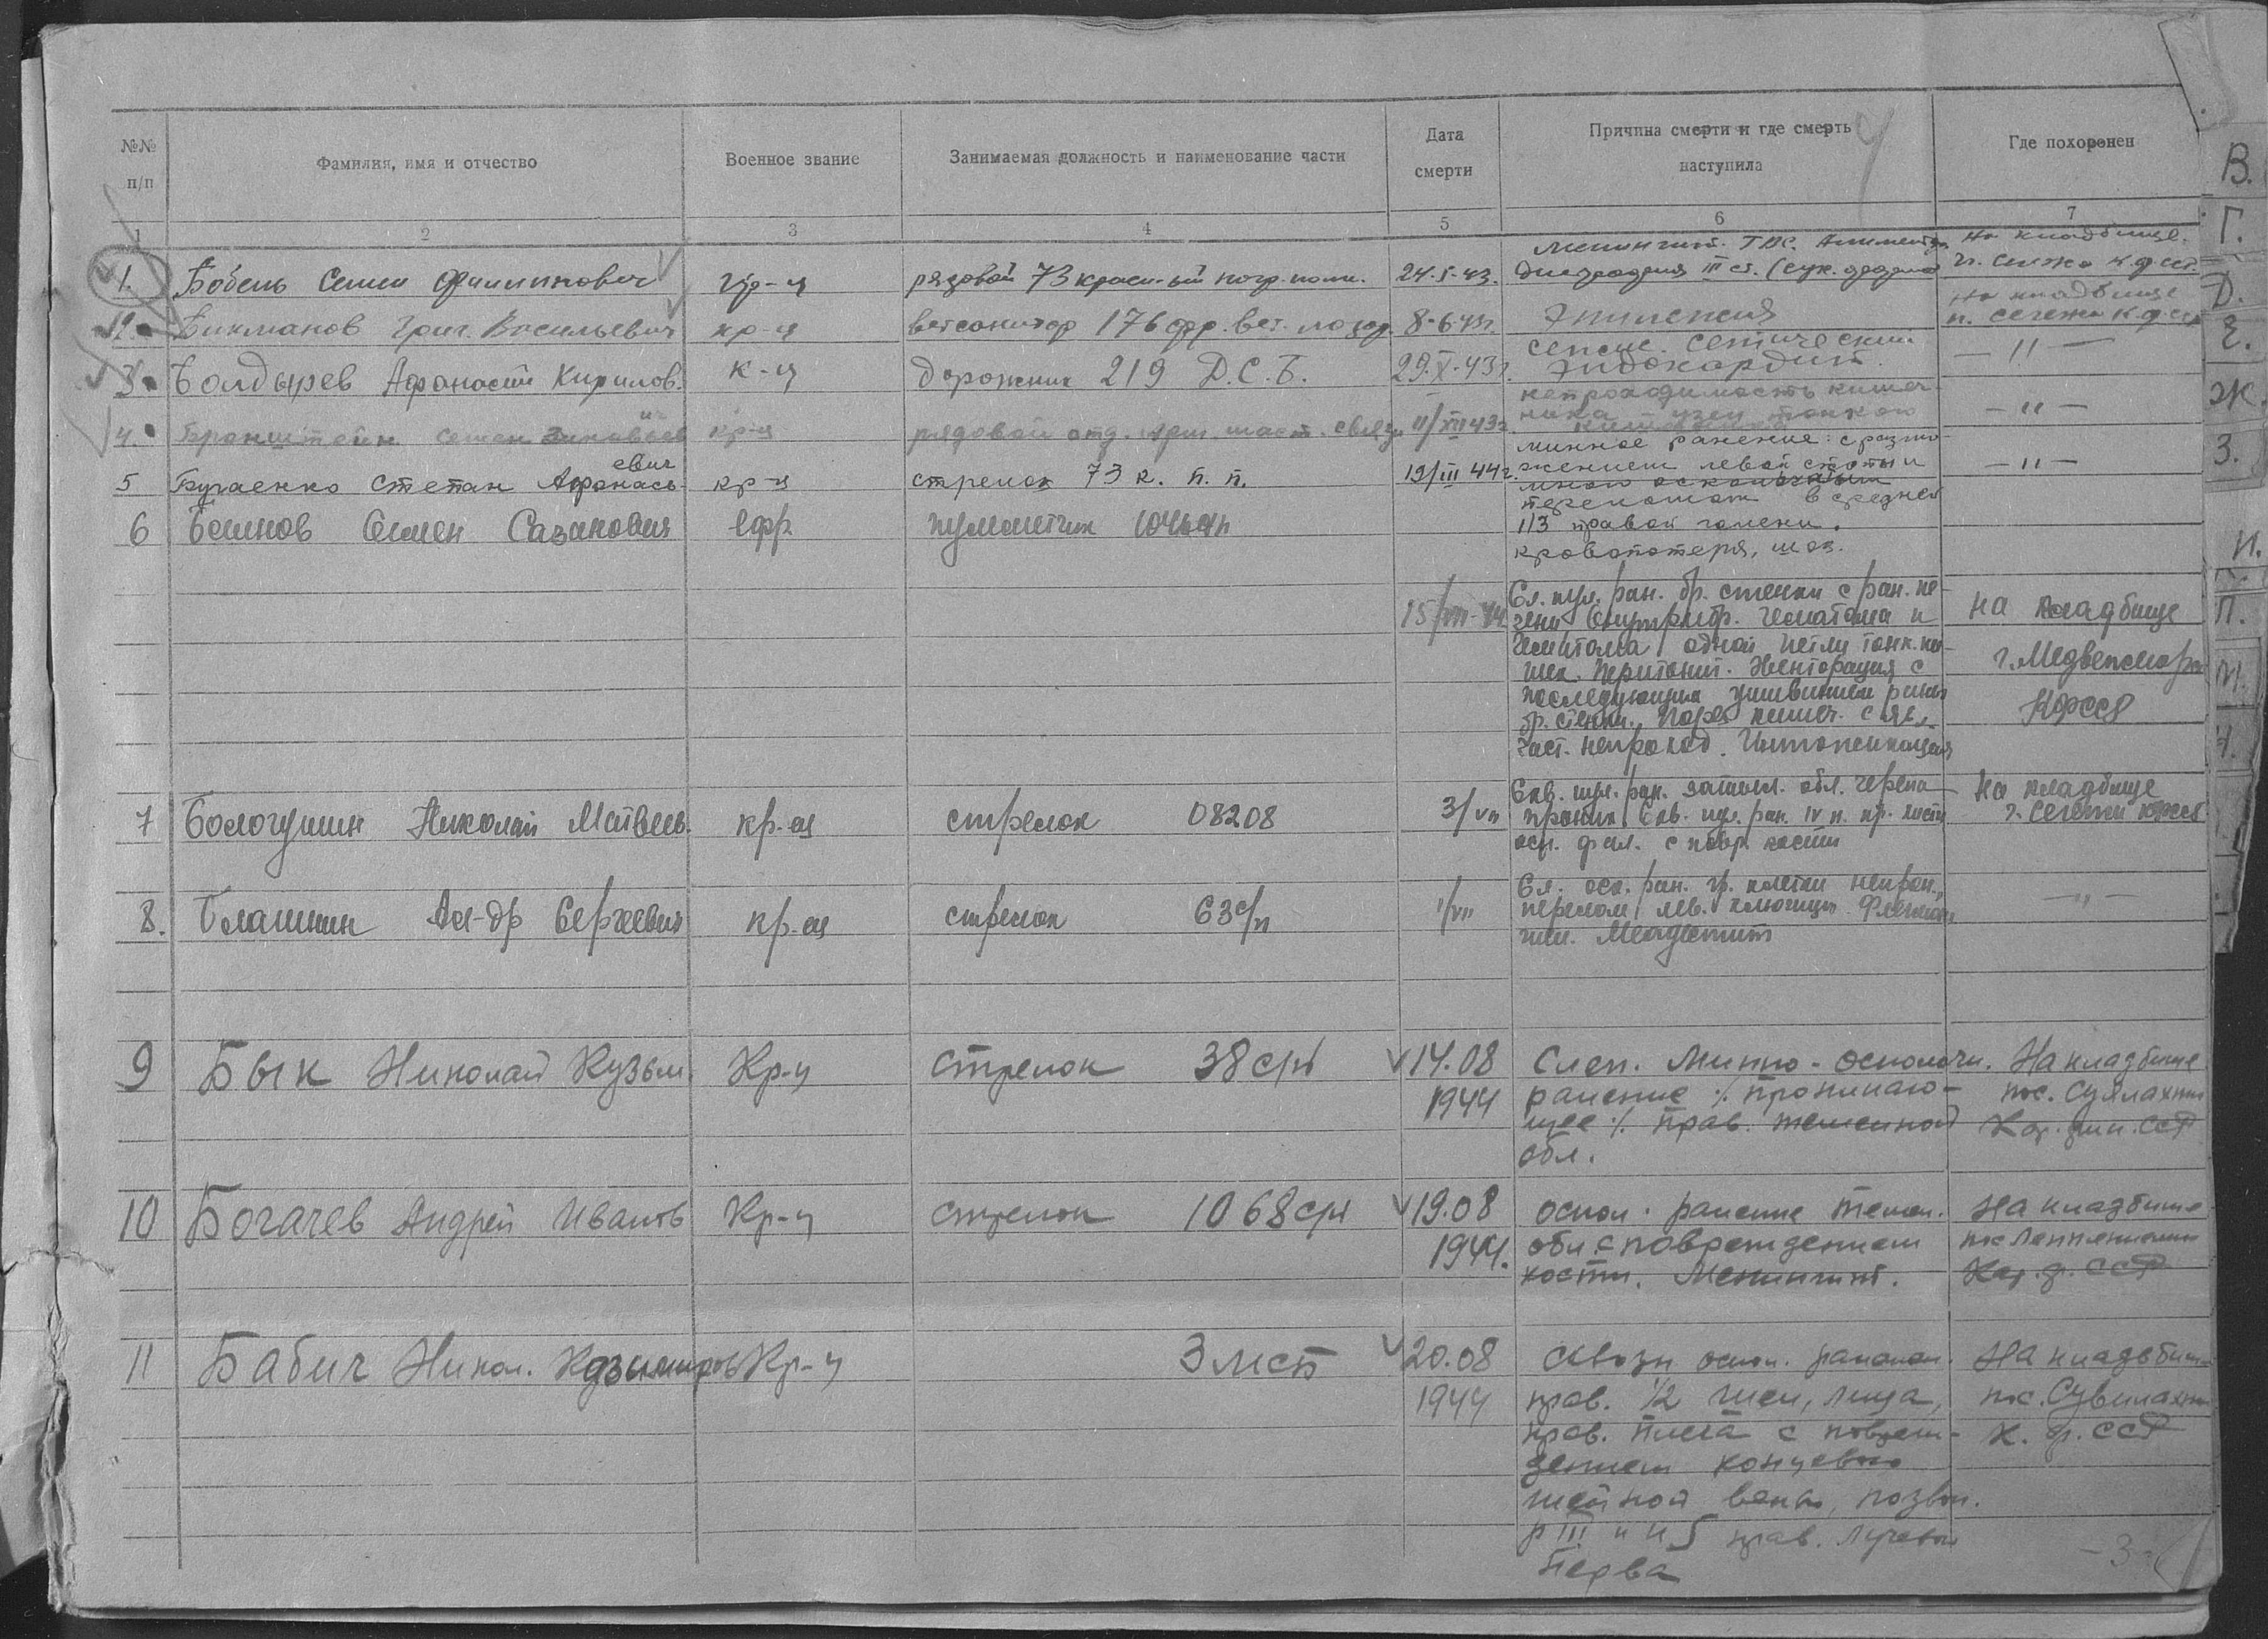 №№ п/п
Фамилия, имя и отчество
Военное звание
Занимаемая должность и наименование части
Дата смерти
Причина смерти и где смерть наступила
Где похоронен
1 2 3 4 5 6 7
1. Бобень Семен Филиппович
рядовой 73 красн-ый погр. полк.
24.5.43.
Менингит. ТБС.
III ст.
На кладбище
2. Бикманов Григ. Васильевич кр-ц
ветсанитар 176 фр. вет. лазар.
8-6-43г.
Эпилепсия
На кладбище
п. Сегежа
3. Болдырев Афанасий Кирилов. к-ц
Дорожник 219 Д.С.Б.
29.X.43г.
Сепсис. Септический
Эндокардит.
— " —
4. Бронштейн Семен Зиновьев
ич
кр-ц
рядовой отд. арт. маст. связи
11/XII 43г.
непроходимость кишеч-
ника узел тонкого
кишечника
— " —
5 Бугаенко Степан Афанась-
евич
кр-ц
стрелок 73 к. п. п.
19/III 44г.
минное ранение: с размо-
жением левой стопы и
много оскольчатым
переломом в средней
1/3 правой голени.
кровопотеря, шок.
— " —
6 Беинов Семен Сазанович ефр
пулеметчик
15/VIII-44
Сл. пул. ран. бр. стенки с ран. пе-
чени
одной петли тонк. ки-
шек. Перитонит. Эвентрация с
последующим ушиванием раны
бр. стенки. Парез кишеч. с яв.
част. непроход. Интоксикация
на кладбище
г. Медвежегорс
КФССР
7 Бологушин Николай Матвеев. кр-ец
стрелок 08208
3/VII
Скв. пул. ран. затыл. обл. черепа
проник. Скв. пул. ран. IV п. пр. кисти
осн. фал. с повр. кости
На кладбище
г. Сегежи КФССР
8. Блашкин Ал-др Сергеевич кр-ец
стрелок 63 с/п
"/VII
Сл. оск. ран. гр. клетки непрон.,
перелом лев. ключицы. Флегмона
шеи. Медиастинит
— " —
9 Бык Николай Кузьм. Кр-ц
Стрелок 38 сп
14.08
1944
Слеп. Минно-осколочн.
ранение %. проникаю-
щее %. прав. теменной
обл.
На кладбище
пос. Суялахти
Кар. фин. ССР
10 Богачев Андрей Иванов Кр-ц
стрелок 1068 сп
19.08
1944.
оскол. ранение темен.
обл. с повреждением
кости. Менингит.
На кладбище
Кар. ф. ССР
11 Бабич Никол. Казимиров Кр-ц
3 мсб
20.08
1944
Сквозн оскол. ранение
прав. 1/2 шеи, лица,
прав. плеча с повреж-
дением концевого
шейной вены, позвон.
прав. лучевого
нерва
На кладбище
пос. Сувилахти
К. ф. ССР
— 3 —
В.
Г.
Д.
Е.
Ж.
З.
И.
П.
М.
Н.